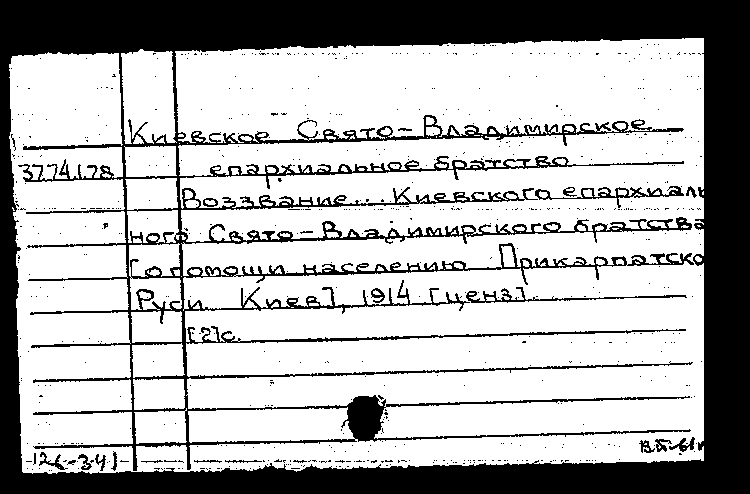 Киевское Свято-Владимирское
37.74.1.78. епархиальное братство
Воззвание... Киевского епархиаль
ного Свято-Владимирского братства
[о помощи населению Прикарпатско
Руси. Киев], 1914 [ценз].
[2]с.